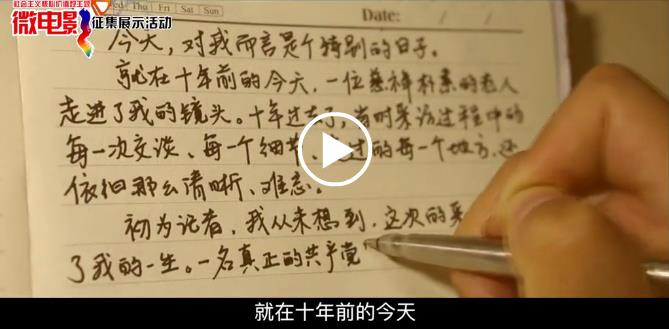 社会主义核心价值观主题
微电影
征集展示活动
Wed Thu Fri Sat Sun
Date: / /
今天，对我而言是个特别的日子。
就在十年前的今天，一位慈祥朴素的老人
走进了我的镜头。十年过去了，当时采访过程中的
每一次交谈、每一个细节、过的每一个地方，还
依徊那么清晰、难忘。
初为记者，我从未想到，这次的采
了我的一生。一名真正的共产党
就在十年前的今天